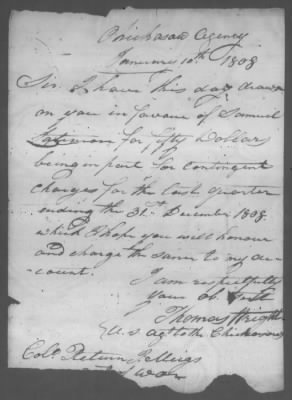 Chickasaw Agency
January 10th 1808
Sir I have this day drawn
on you in favour of Samuel
for fifty Dollars
being in part for contingent
charges for the last quarter
ending the 31st December 1808
which I hope you will honour
and charge the same to my ac-
count.
I am respectfully
your ob. Svt
Thomas Wright
U. S agt to the Chickasaws
Colo. Return J Meigs